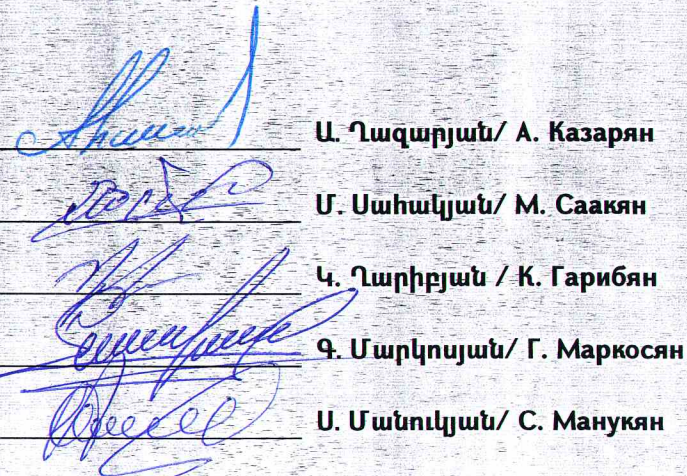 Ա. Ղազարյան/ А. Казарян
Մ. Սահակյան/ М. Саакян
Կ. Ղարիբյան / К. Гарибян
Գ. Մարկոսյան/ Г. Маркосян
Ս. Մանուկյան/ С. Манукян